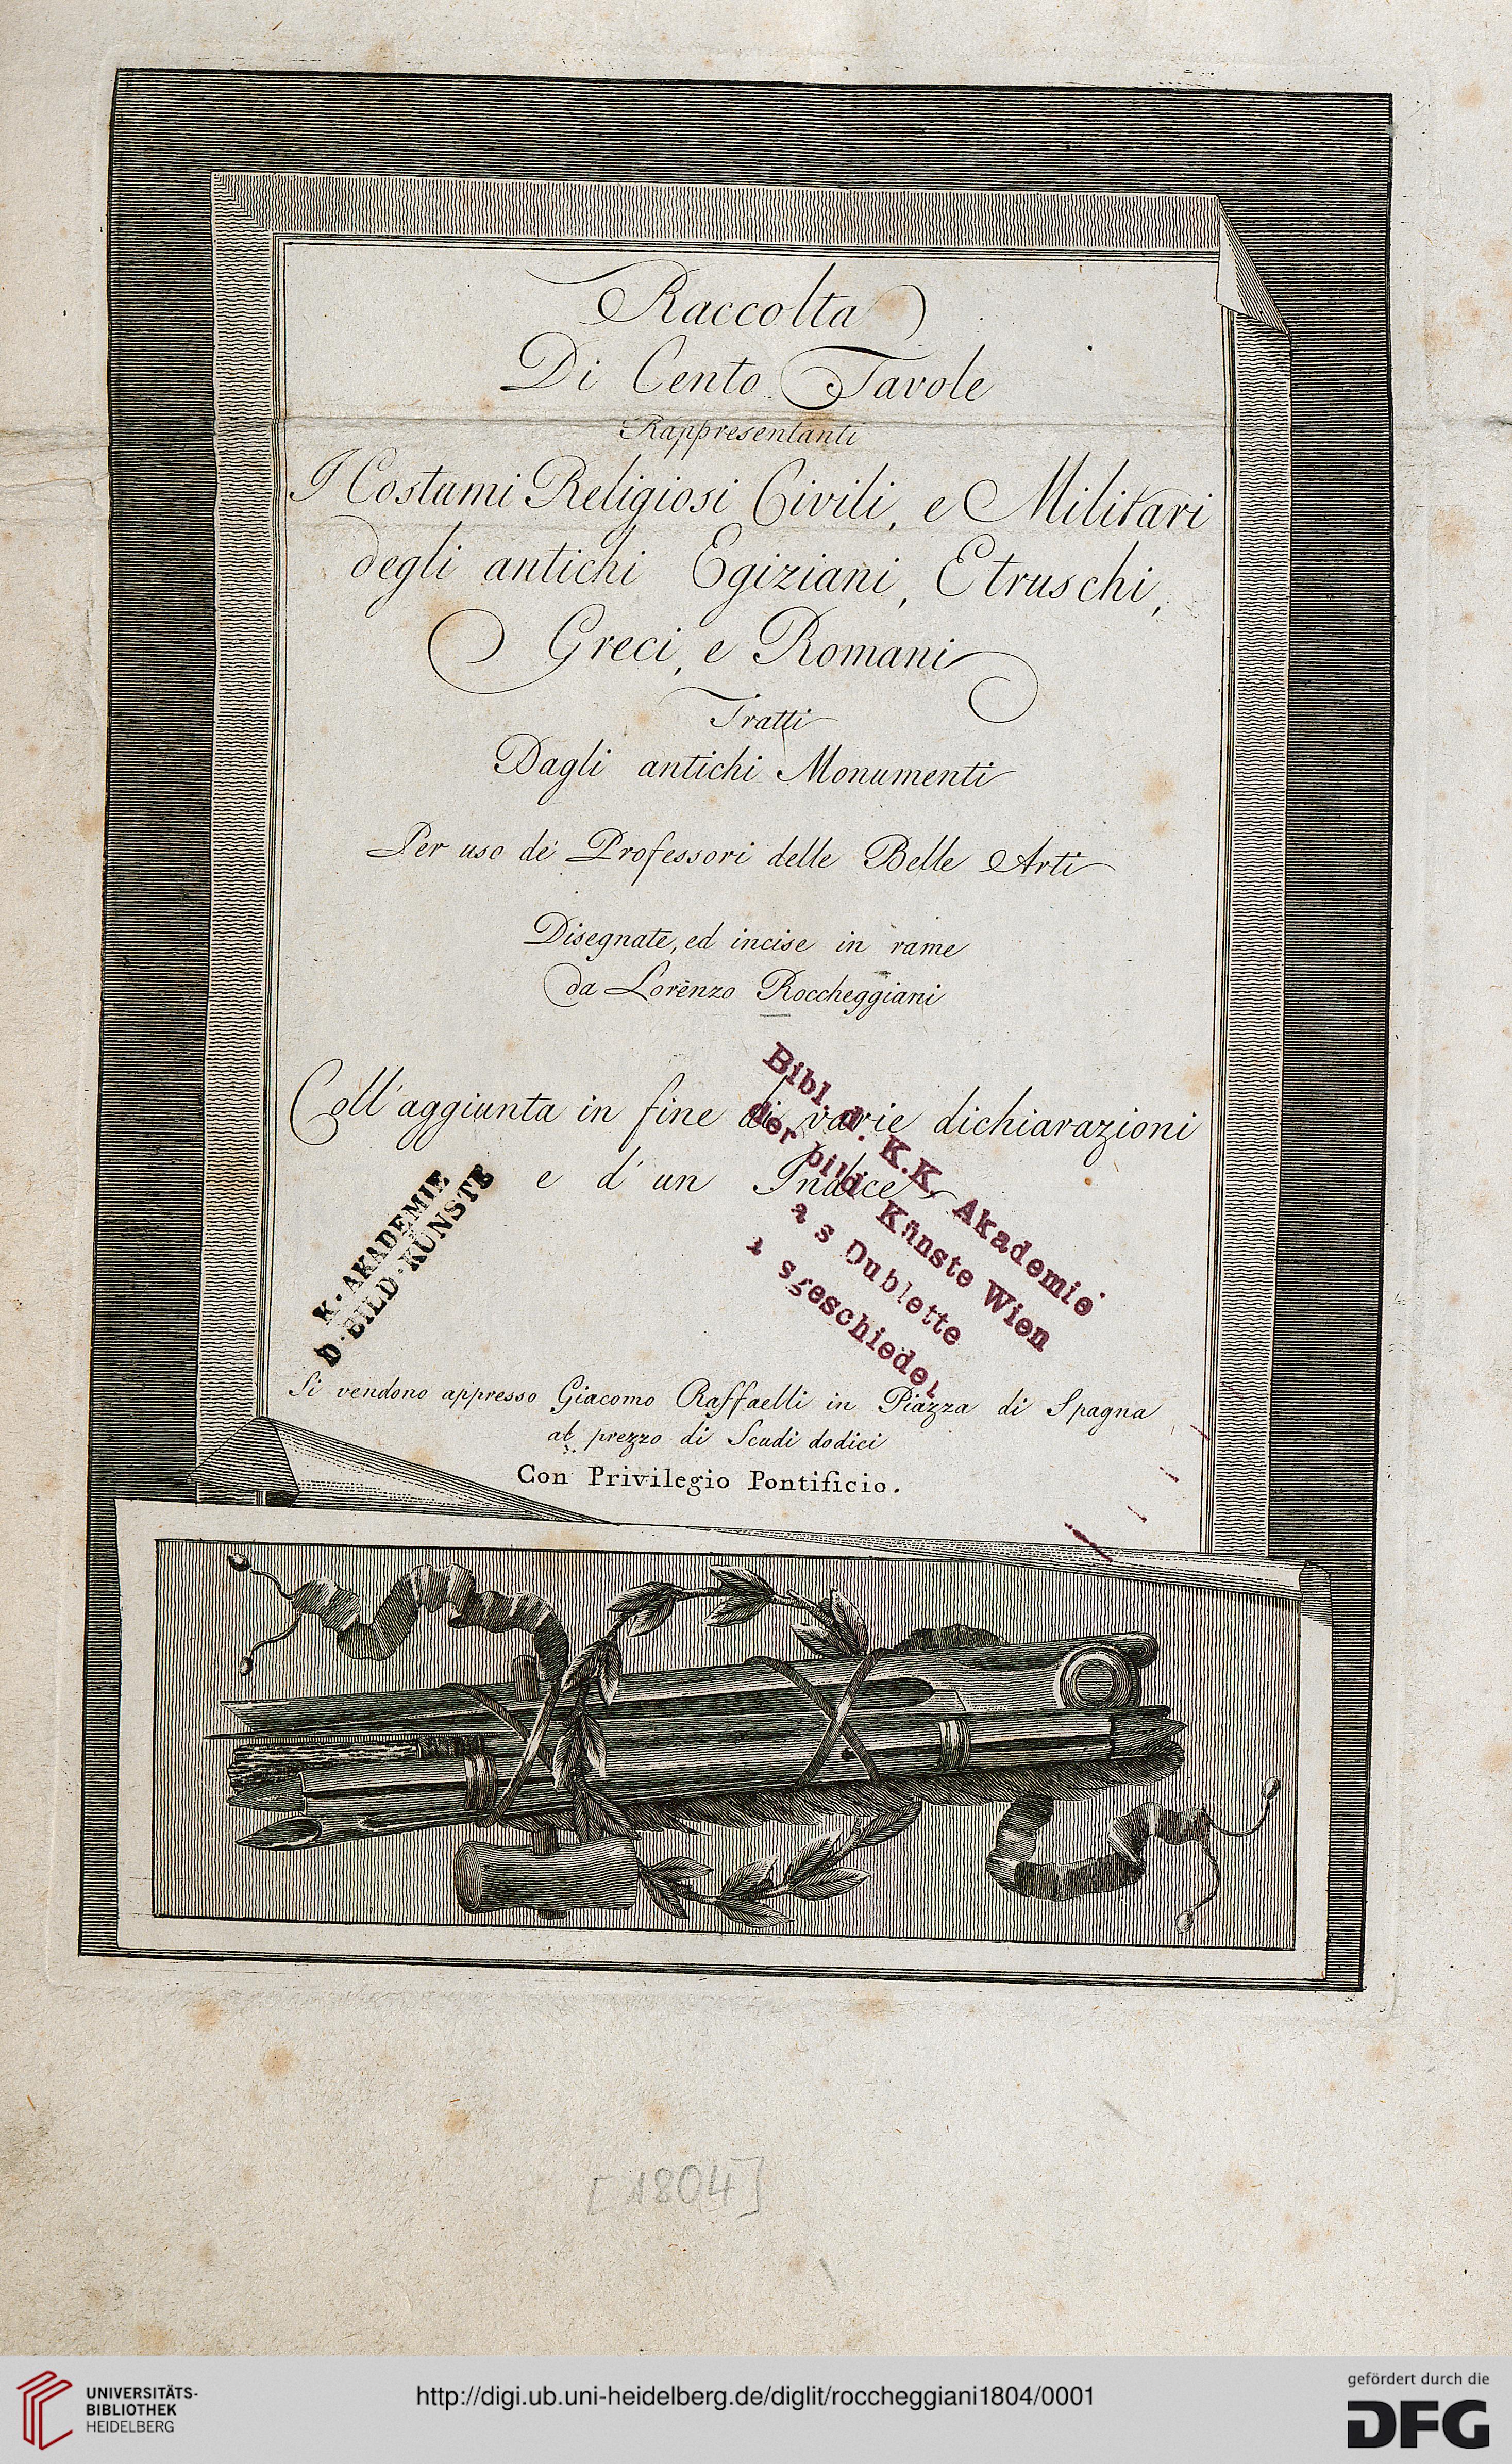 Raccolta
Di Cento Tavole
Rappresentanti
I Costumi Religiosi Civili, e Militari
degli antichi Egiziani, Etruschi,
Greci, e Romani
Tratti
Dagli antichi Monumenti
Per uso de' Professori delle Belle Arti
Disegnate, ed incise in rame
da Lorenzo Roccheggiani
Coll' aggiunta in fine di varie dichiarazioni
e d' un Indice
Bibl. d. K.K. Akademie
der bild. Künste Wien
a s Dublette
a sgeschieden
K. AKADEMIE
D. BILD. KÜNSTE
Si vendono appresso Giacomo Raffaelli in Piazza di Spagna
al prezzo di Scudi dodici
Con Privilegio Pontificio.
[1804]
UNIVERSITÄTS-
BIBLIOTHEK
HEIDELBERG
http://digi.ub.uni-heidelberg.de/diglit/roccheggiani1804/0001
gefördert durch die
DFG